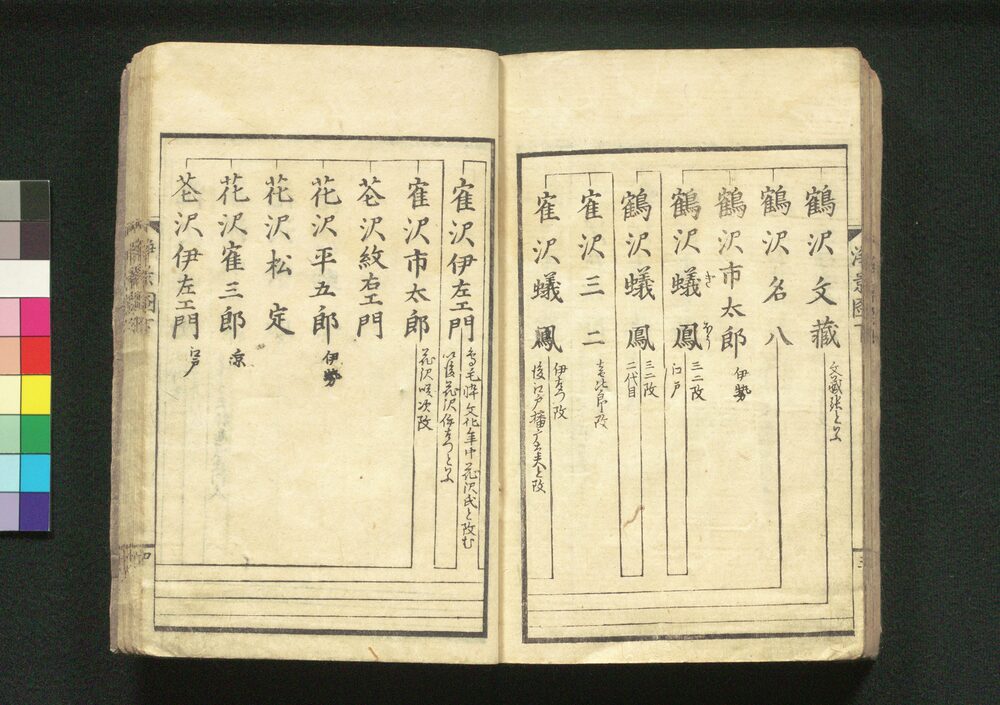 鶴沢文藏
文藏張といふ
鶴沢名八
鶴沢市太郎
伊勢
鶴沢蟻鳳
きほう
三二改
江戸
鶴沢蟻鳳
三二改
二代目
寉沢三二
寉沢蟻鳳
伊左つ改
後江戸播广太夫と改
寉沢伊左エ門
文化年中花沢氏と改む
以後花沢伊左つといふ
寉沢市太郎
花沢咲次改
苍沢紋右エ門
花沢平五郎
伊勢
花沢松定
花沢寉三郎
京
苍沢伊左エ門
江戸